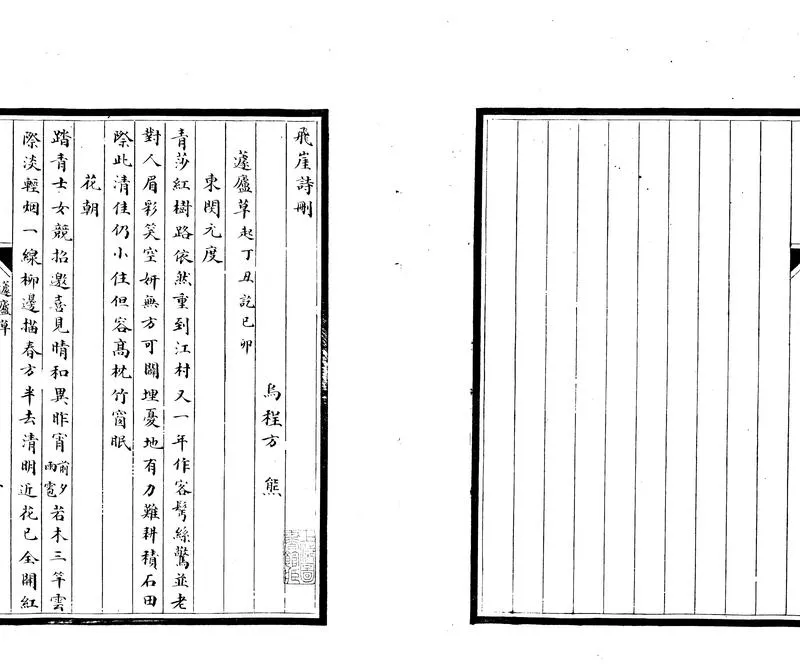 飛崖詩刪
烏程方 熊
蘧廬草起丁丑訖己卯
東閔元度
青莎紅樹路依然重到江村又一年作客鬢絲驚並老
對人眉彩笑空妍無方可鬬埋憂地有力難耕積石田
際此清佳仍小住但容髙枕竹窗眠
花朝
踏青士女競招邀喜見晴和異昨宵前夕雨雹若木三竿雲
際淡輕烟一線柳邊描春方半去清明近花已全開紅
蘧廬草